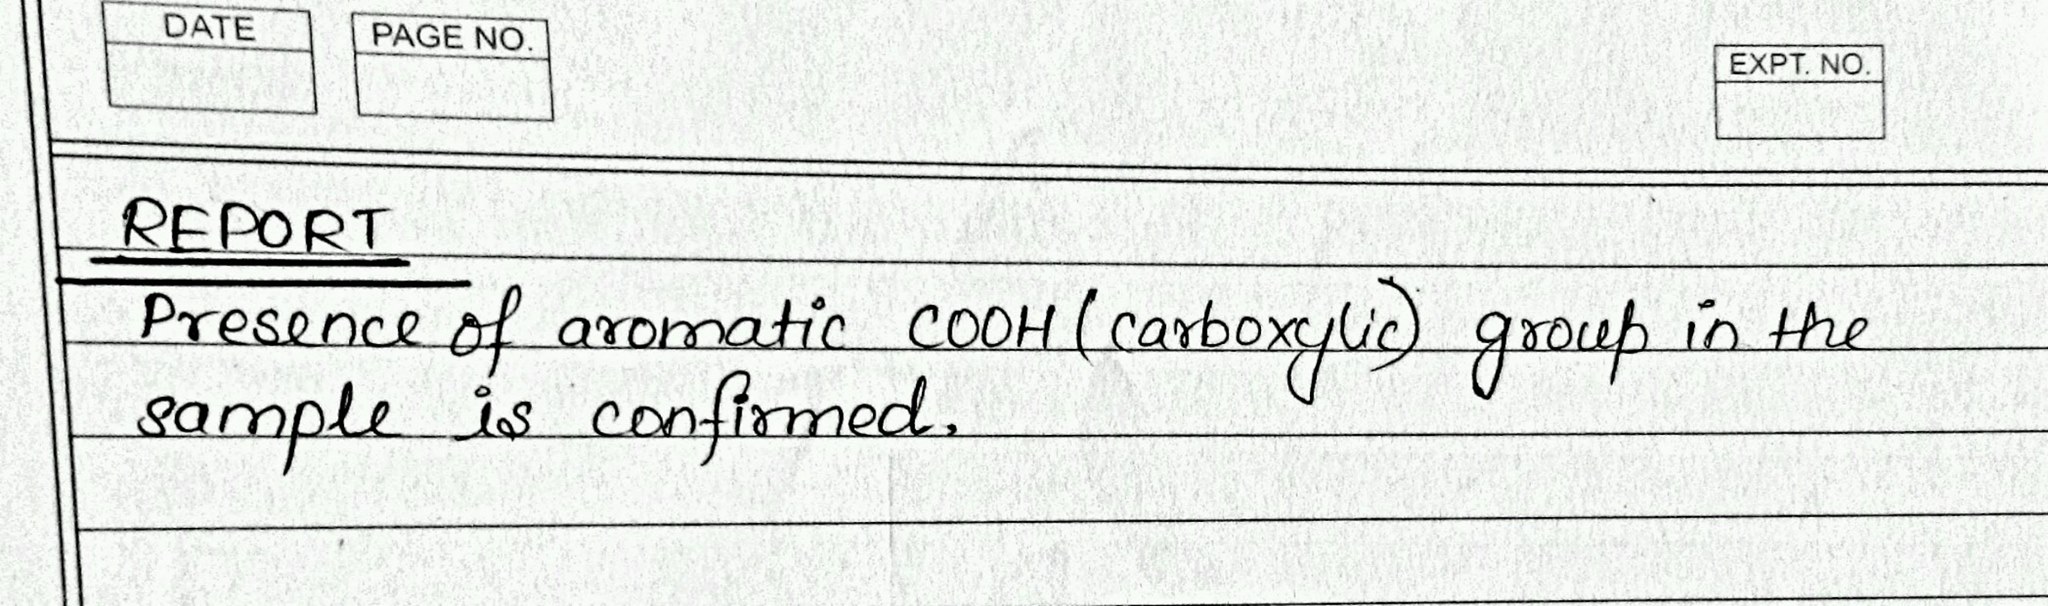 DATE PAGE NO. EXPT. NO.
REPORT
Presence of aromatic COOH (carboxylic) group in the
sample is confirmed.